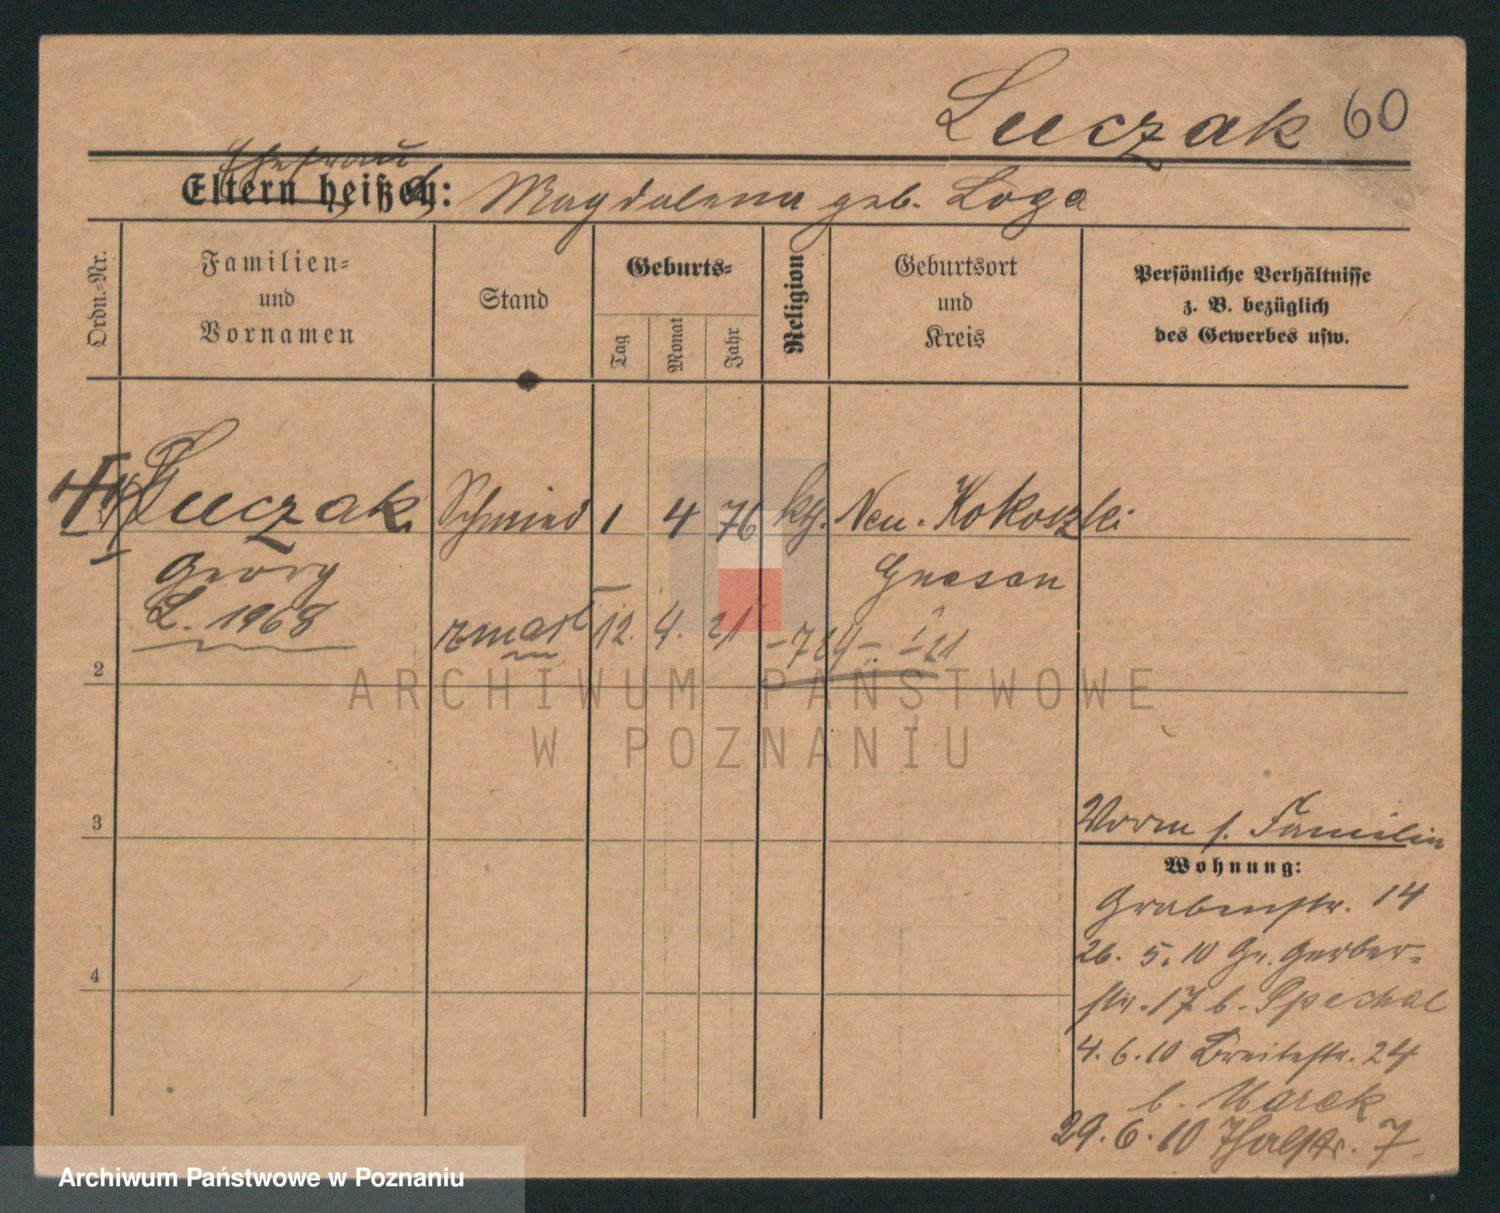 Luczak 60
Ehefrau
Eltern heißen: Magdalena geb. Loga
Ordn.-Nr.
Familien-
und
Vornamen
Stand
Geburts-
Tag
Monat
Jahr
Religion
Geburtsort
und
Kreis
Persönliche Verhältnisse
z. B. bezüglich
des Gewerbes usw.
Luczak Schmied 1 4 76 kth. Neu-Kokoszki
Georg Gnesen
L. 1968
zmarł 12. 4. 21
2
3
4
Familie
Wohnung:
Grabenstr. 14
26. 5. 10 Gr. Gerber-
str. 17 b. Spichal
4. 6. 10 Breitestr. 24
b. Marek
29. 6. 10 Thalstr. 7
ARCHIWUM PAŃSTWOWE
W POZNANIU
Archiwum Państwowe w Poznaniu